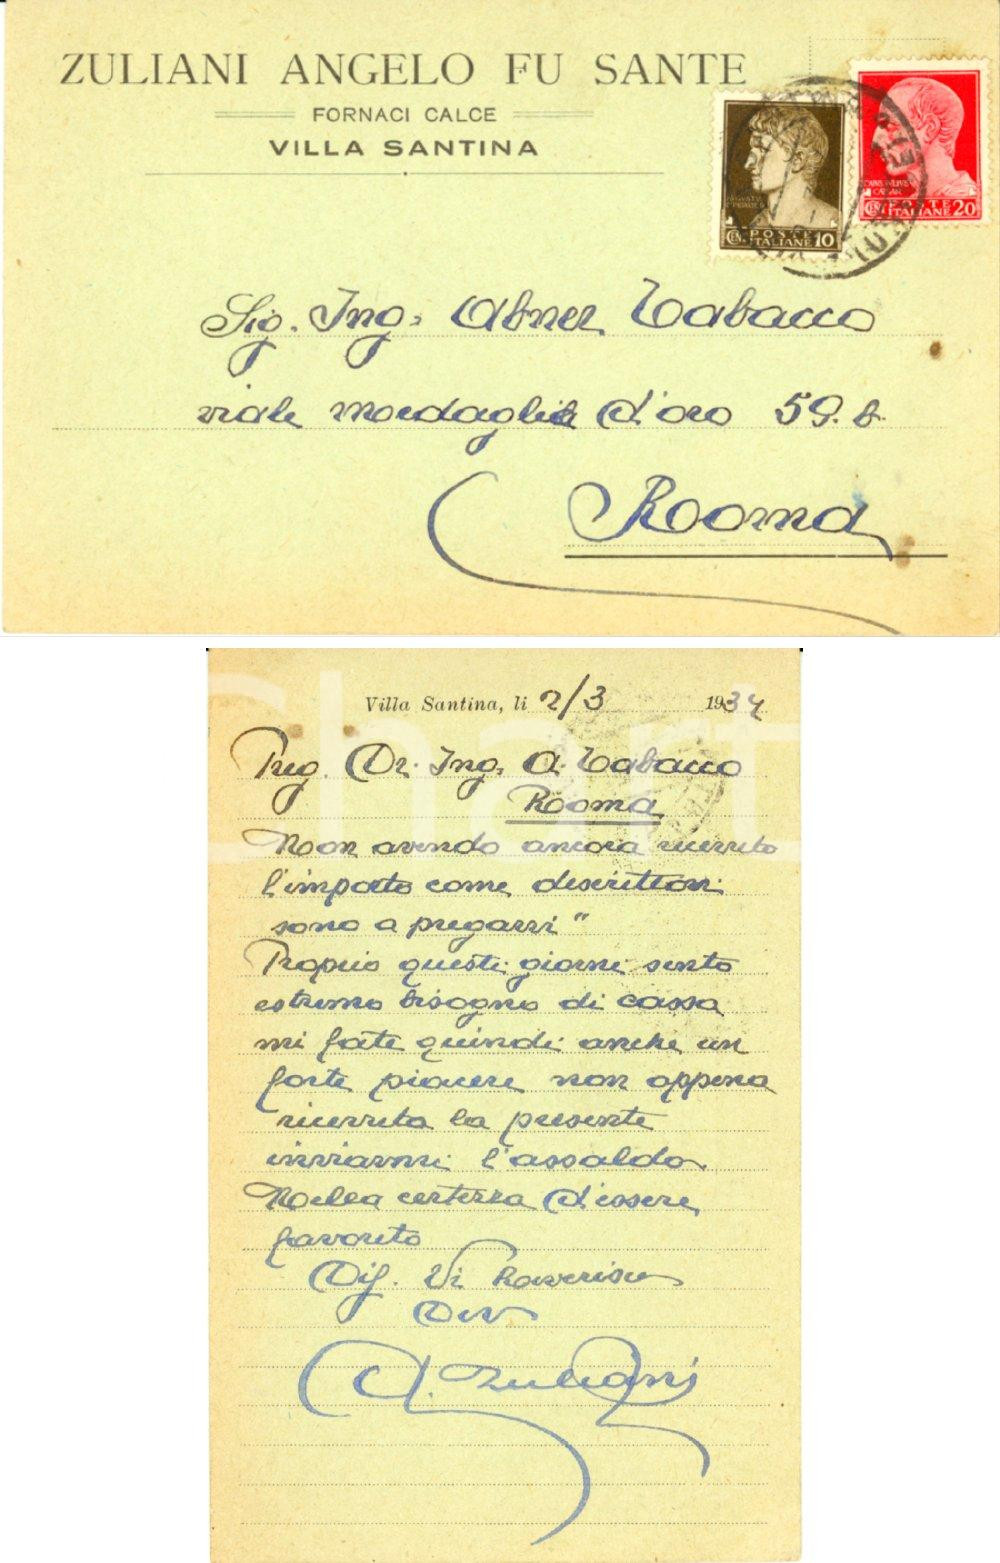 ZULIANI ANGELO FU SANTE
FORNACI CALCE
VILLA SANTINA
CEN. POSTE ITALIANE 10
CEN. POSTE ITALIANE 20
Sig. Ing. Abner Tabacco
viale medaglie d'oro 59.b.
Rooma
Villa Santina, li 2/3 1934
Preg. Dr. Ing. A. Tabacco
Rooma
Non avendo ancora ricevuto
l'importo come
sono a pregarvi "
Proprio questi giorni sento
estremo bisogno di cassa
mi fate quindi anche un
forte piacere non appena
ricevuta la presente
inviarmi l'assaldo
Nella certezza d'essere
favorito
Dist. Vi Riverisco
Dev
A. Zuliani